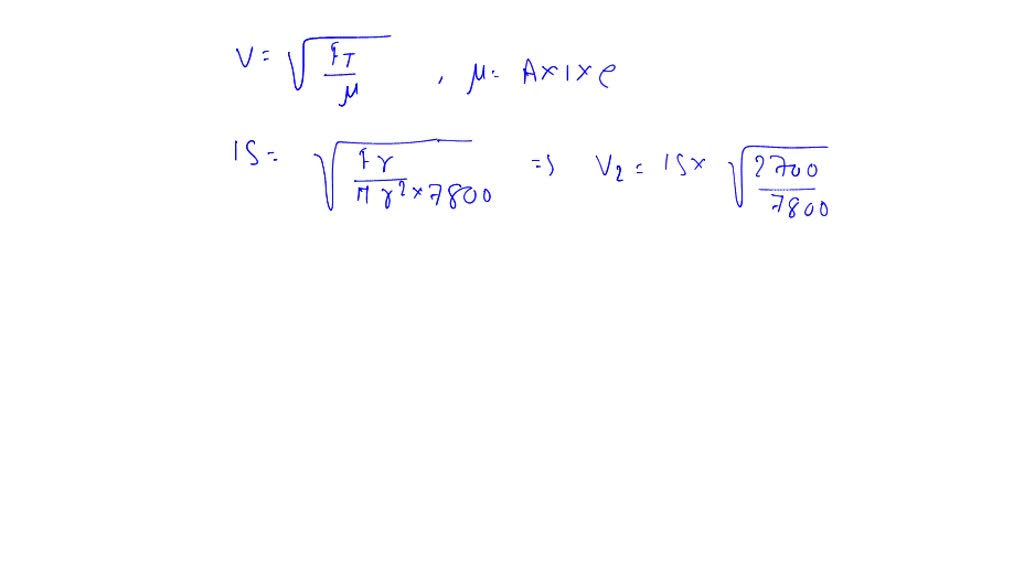 V = √(F_T / μ) , μ = A × 1 × ρ
15 = √(F_T / (π r² × 7800)) ⇒ V₂ = 15 × √(2700 / 7800)